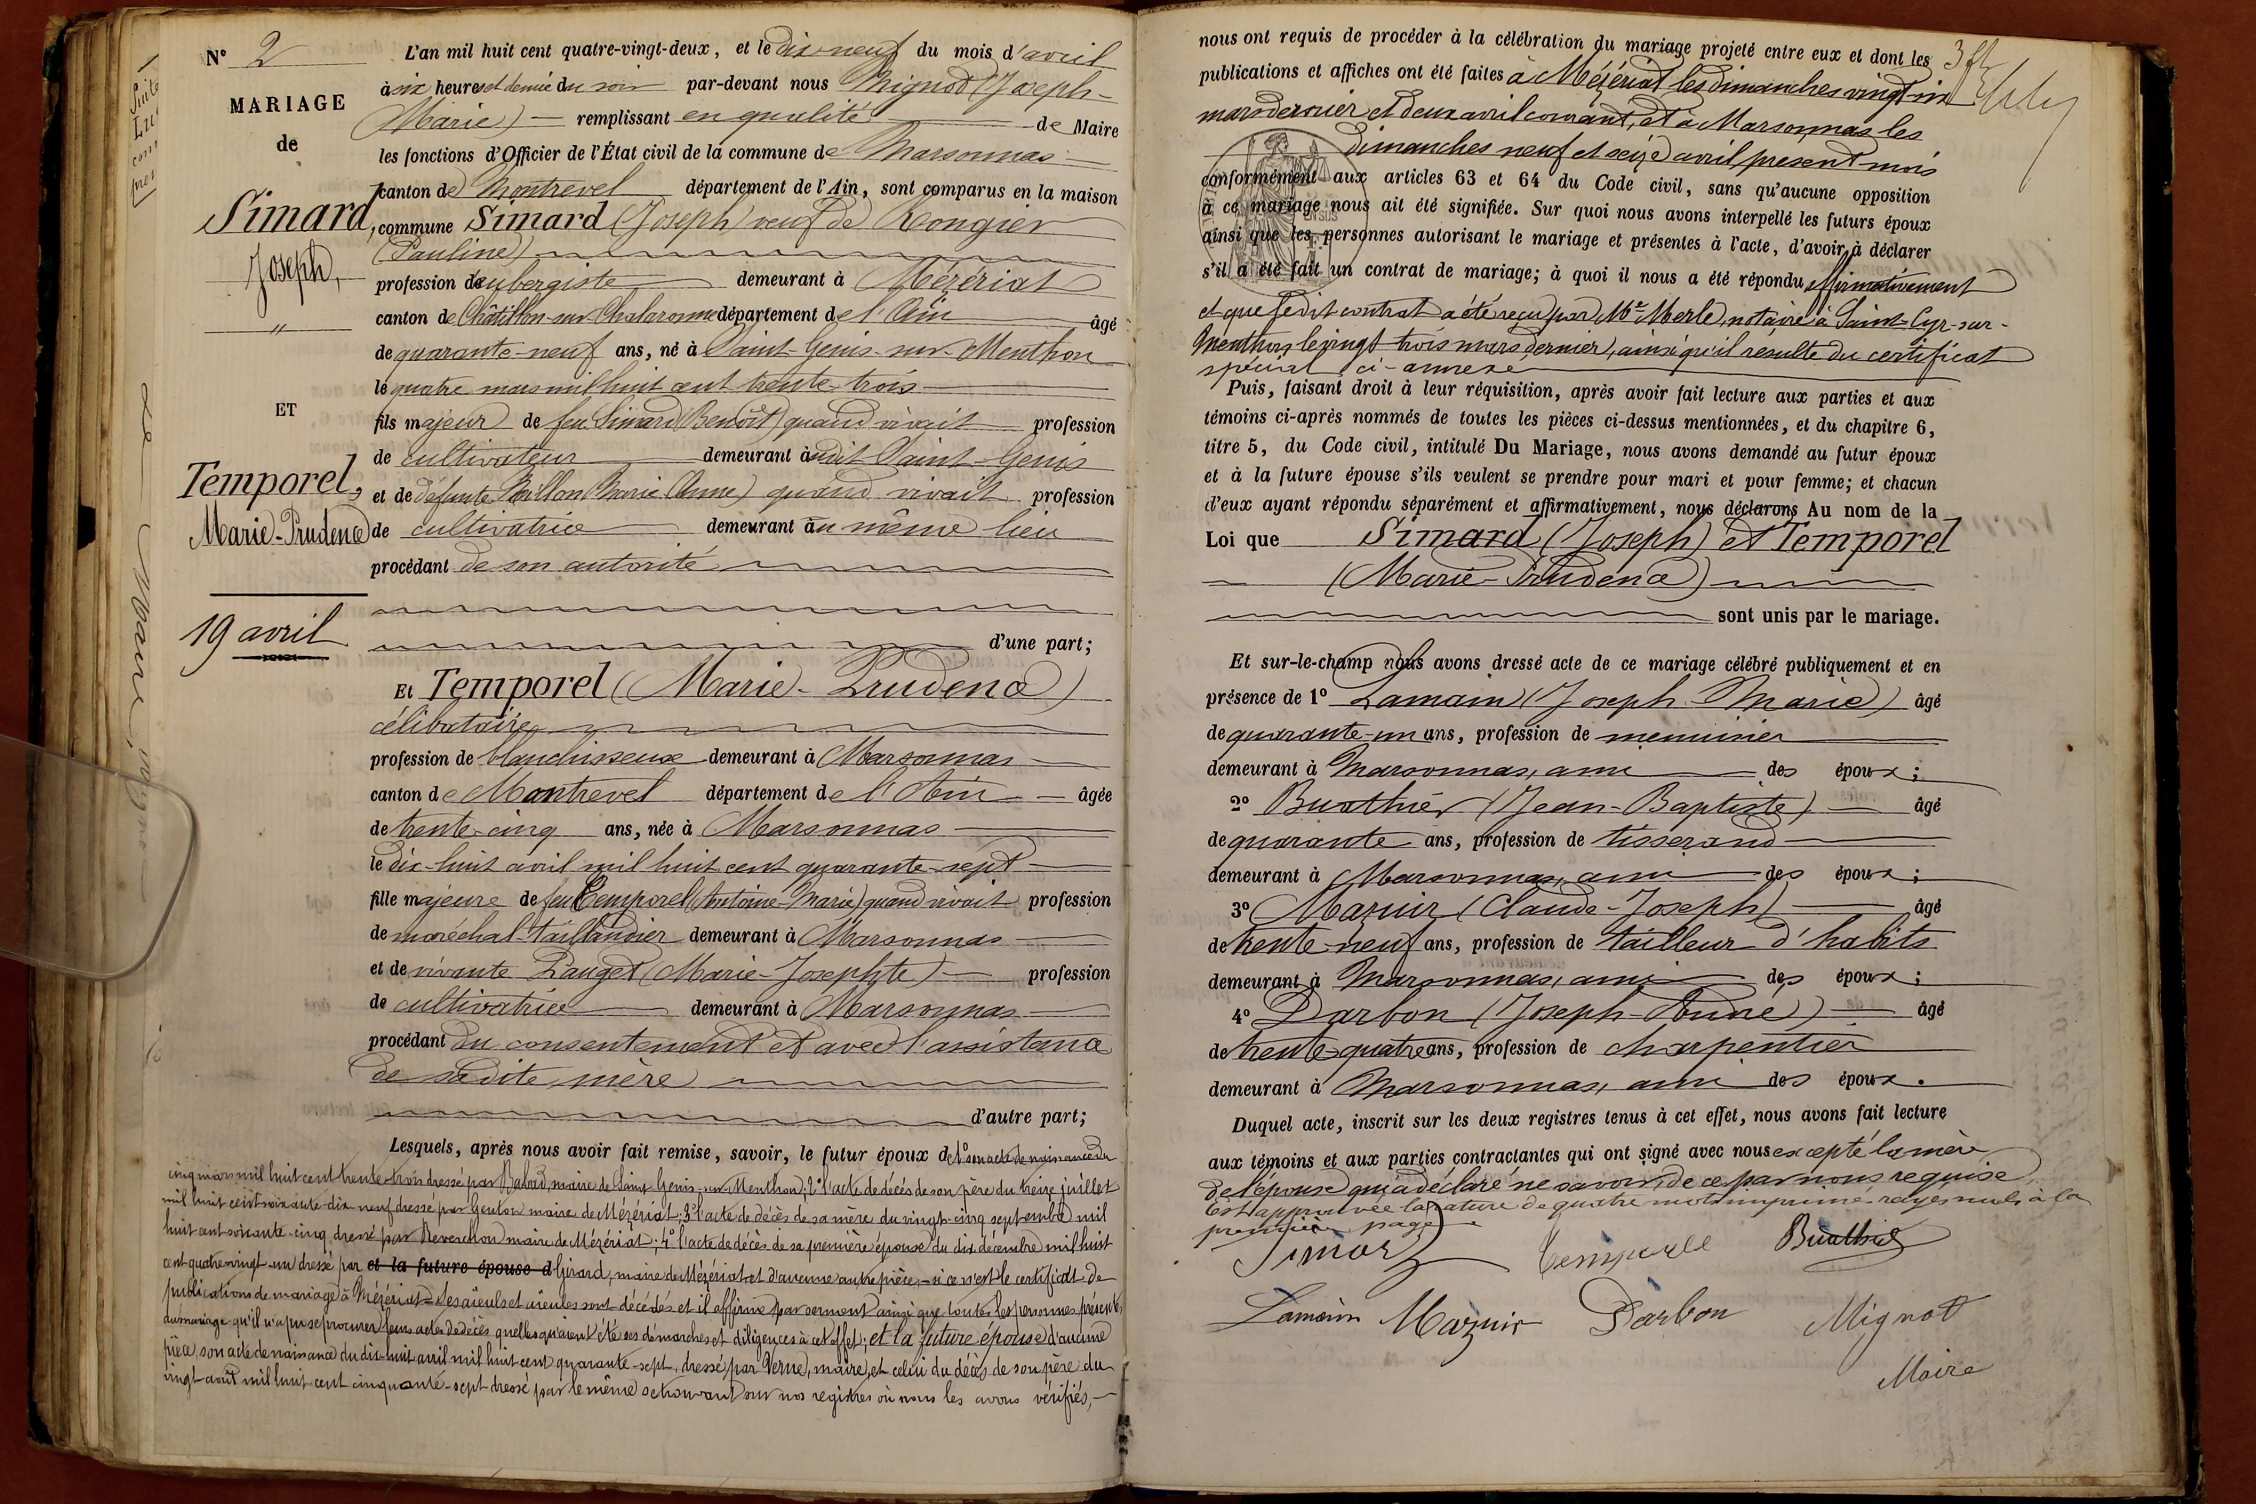 N° 2
MARIAGE
de
Simard,
Joseph,
"
ET
Temporel,
Marie-Prudence
19 avril
L'an mil huit cent quatre-vingt-deux, et le dix-neuf du mois d'avril
à six heures et demie du soir par-devant nous Mignot (Joseph-
Marie) remplissant en qualité de Maire
les fonctions d'Officier de l'État civil de la commune de Marsonnas
canton de Montrevel département de l'Ain, sont comparus en la maison
commune Simard (Joseph) veuf de Rongier
(Pauline)
profession d'aubergiste demeurant à Mézériat
canton de Châtillon-sur-Chalaronne département de l'Ain âgé
de quarante-neuf ans, né à Saint-Genis-sur-Menthon
le quatre mars mil huit cent trente-trois
fils majeur de feu Simard (Benoît) quand vivait profession
de cultivateur demeurant audit Saint-Genis
et de défunte (Marie Anne) quand vivait profession
de cultivatrice demeurant au même lieu
procédant de son autorité
d'une part;
Et Temporel (Marie-Prudence)
célibataire
profession de blanchisseuse demeurant à Marsonnas
canton de Montrevel département de l'Ain âgée
de trente-cinq ans, née à Marsonnas
le dix-huit avril mil huit cent quarante-sept
fille majeure de feu Temporel (Antoine-Marie) quand vivait profession
de maréchal-taillandier demeurant à Marsonnas
et de vivante Pauget (Marie-Josephte) profession
de cultivatrice demeurant à Marsonnas
procédant du consentement et avec l'assistance
de sadite mère
d'autre part;
Lesquels, après nous avoir fait remise, savoir, le futur époux de 1° son acte de naissance du
cinq mars mil huit cent trente-trois dressé par maire de Saint-Genis-sur-Menthon; 2° l'acte de décès de son père du treize juillet
mil huit cent soixante-dix-neuf dressé par maire de Mézériat; 3° l'acte de décès de sa mère du vingt-cinq septembre mil
huit cent soixante-cinq dressé par Reverchon maire de Mézériat; 4° l'acte de décès de sa première épouse du dix décembre mil huit
cent quatre-vingt-un dressé par et la future épouse d Girard, maire de Mézériat et d'aucune autre pièce, si ce n'est le certificat de
publications de mariage à Mézériat. Ses aïeuls et aïeules sont décédés et il affirme par serment ainsi que toutes les personnes présentes
au mariage qu'il n'a pu se procurer leurs actes de décès quelles qu'aient été ses démarches et diligences à cet effet; et la future épouse d'aucune
pièce, son acte de naissance du dix-huit avril mil huit cent quarante-sept, dressé par Verne, maire, et celui du décès de son père du
vingt août mil huit cent cinquante-sept dressé par le même se trouvant sur nos registres où nous les avons vérifiés,
nous ont requis de procéder à la célébration du mariage projeté entre eux et dont les
publications et affiches ont été faites à Mézériat les dimanches vingt-six
mars dernier et deux avril courant, et à Marsonnas les
dimanches neuf et seize avril présent mois
conformément aux articles 63 et 64 du Code civil, sans qu'aucune opposition
à ce mariage nous ait été signifiée. Sur quoi nous avons interpellé les futurs époux
ainsi que les personnes autorisant le mariage et présentes à l'acte, d'avoir à déclarer
s'il a été fait un contrat de mariage; à quoi il nous a été répondu affirmativement
et que ledit contrat a été reçu par Me Merle, notaire à Saint-Cyr-sur-
Menthon, le vingt-trois mars dernier, ainsi qu'il résulte du certificat
spécial ci-annexé
Puis, faisant droit à leur réquisition, après avoir fait lecture aux parties et aux
témoins ci-après nommés de toutes les pièces ci-dessus mentionnées, et du chapitre 6,
titre 5, du Code civil, intitulé Du Mariage, nous avons demandé au futur époux
et à la future épouse s'ils veulent se prendre pour mari et pour femme; et chacun
d'eux ayant répondu séparément et affirmativement, nous déclarons Au nom de la
Loi que Simard (Joseph) et Temporel
(Marie-Prudence)
sont unis par le mariage.
Et sur-le-champ nous avons dressé acte de ce mariage célébré publiquement et en
présence de 1° Lamain (Joseph Marie) âgé
de quarante-un ans, profession de menuisier
demeurant à Marsonnas, ami des époux;
2° Buathier (Jean-Baptiste) âgé
de quarante ans, profession de tisserand
demeurant à Marsonnas, ami des époux;
3° Mazuir (Claude-Joseph) âgé
de trente-neuf ans, profession de tailleur d'habits
demeurant à Marsonnas, ami des époux;
4° Darbon (Joseph-André) âgé
de trente-quatre ans, profession de charpentier
demeurant à Marsonnas, ami des époux.
Duquel acte, inscrit sur les deux registres tenus à cet effet, nous avons fait lecture
aux témoins et aux parties contractantes qui ont signé avec nous excepté la mère
de l'épouse qui a déclaré ne savoir, de ce par nous requise.
Est approuvée la rature de quatre mots imprimés rayés nuls à la
première page
Simard Temporel Buathier
Lamain Mazuir Darbon Mignot
Maire